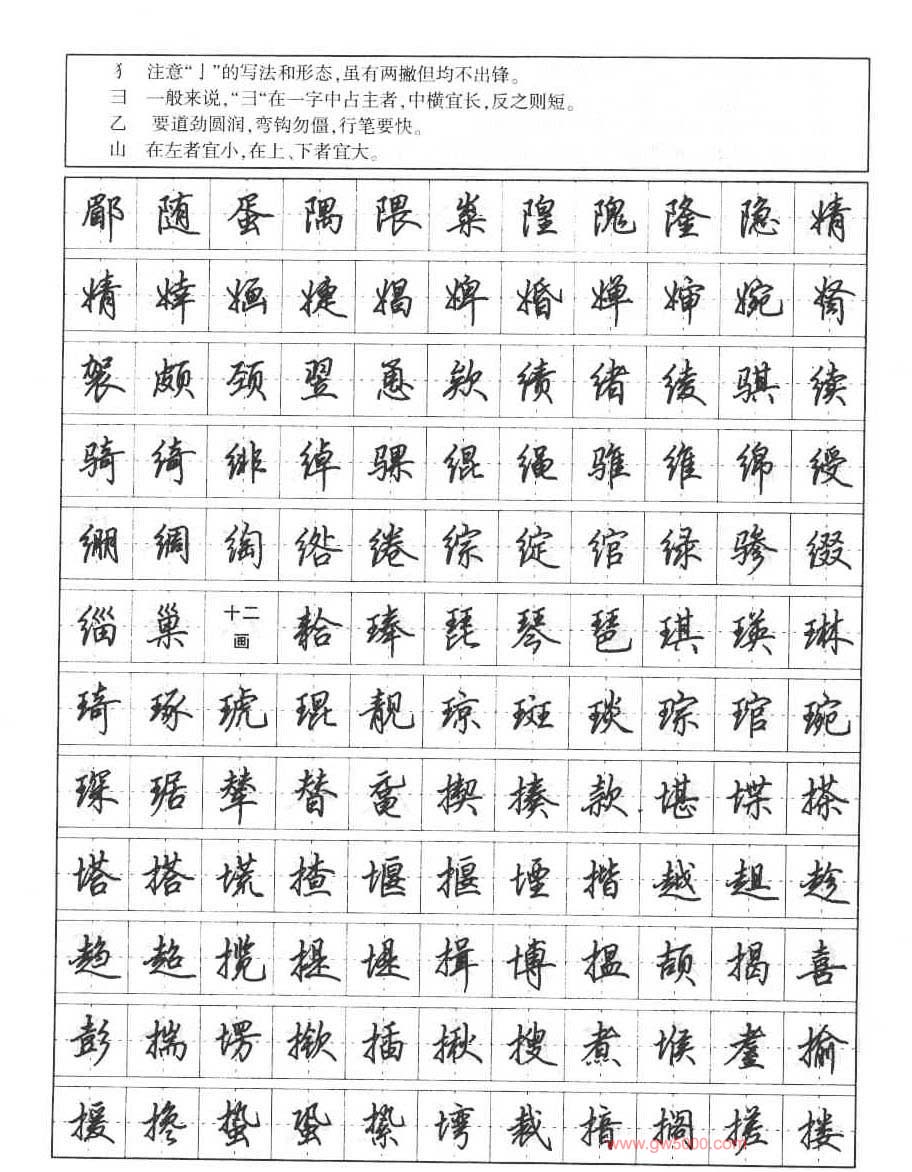 犭 注意“亅”的写法和形态,虽有两撇但均不出锋。
彐 一般来说,“彐“在一字中占主者,中横宜长,反之则短。
乙 要道劲圆润,弯钩勿僵,行笔要快。
山 在左者宜小,在上、下者宜大。
郿 随 蛋 隅 隈 粜 隍 隗 隆 隐 婧
婧 婞 婳 婕 娼 婢 婚 婵 婶 婉 胬
袈 颇 颈 翌 恿 欸 绩 绪 绫 骐 续
骑 绮 绯 绰 骒 绲 绳 骓 维 绵 绶
绷 绸 绹 绺 绻 综 绽 绾 绿 骖 缀
缁 巢 十二画 耠 琫 琵 琴 琶 琪 瑛 琳
琦 琢 琥 琨 靓 琼 斑 琰 琮 琯 琬
琛 琚 辇 替 鼋 揳 揍 款 堪 堞 搽
塔 搭 塃 揸 堰 揠 堙 揩 越 趄 趁
趋 超 揽 提 堤 揖 博 揾 颉 揭 喜
彭 揣 塄 揿 插 揪 搜 煮 堠 耋 揄
援 搀 蛰 蛩 絷 塆 裁 揞 搁 搓 搂
www.gw5000.com